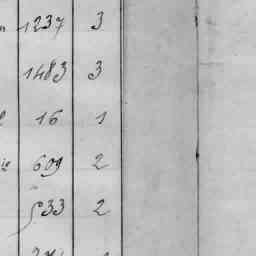 1237 3
1483 3
16 1
609 2
533 2